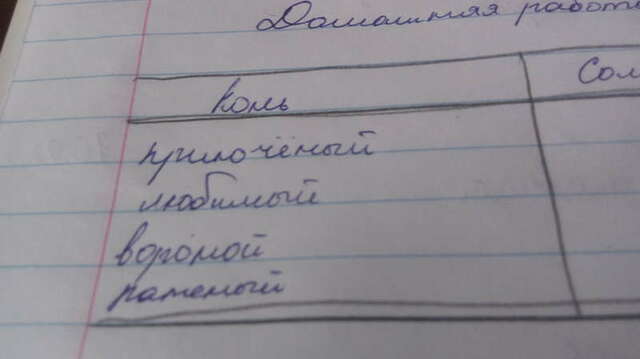 Домашняя работ
Конь Сол
приточёный
любимый
вороной
раненый